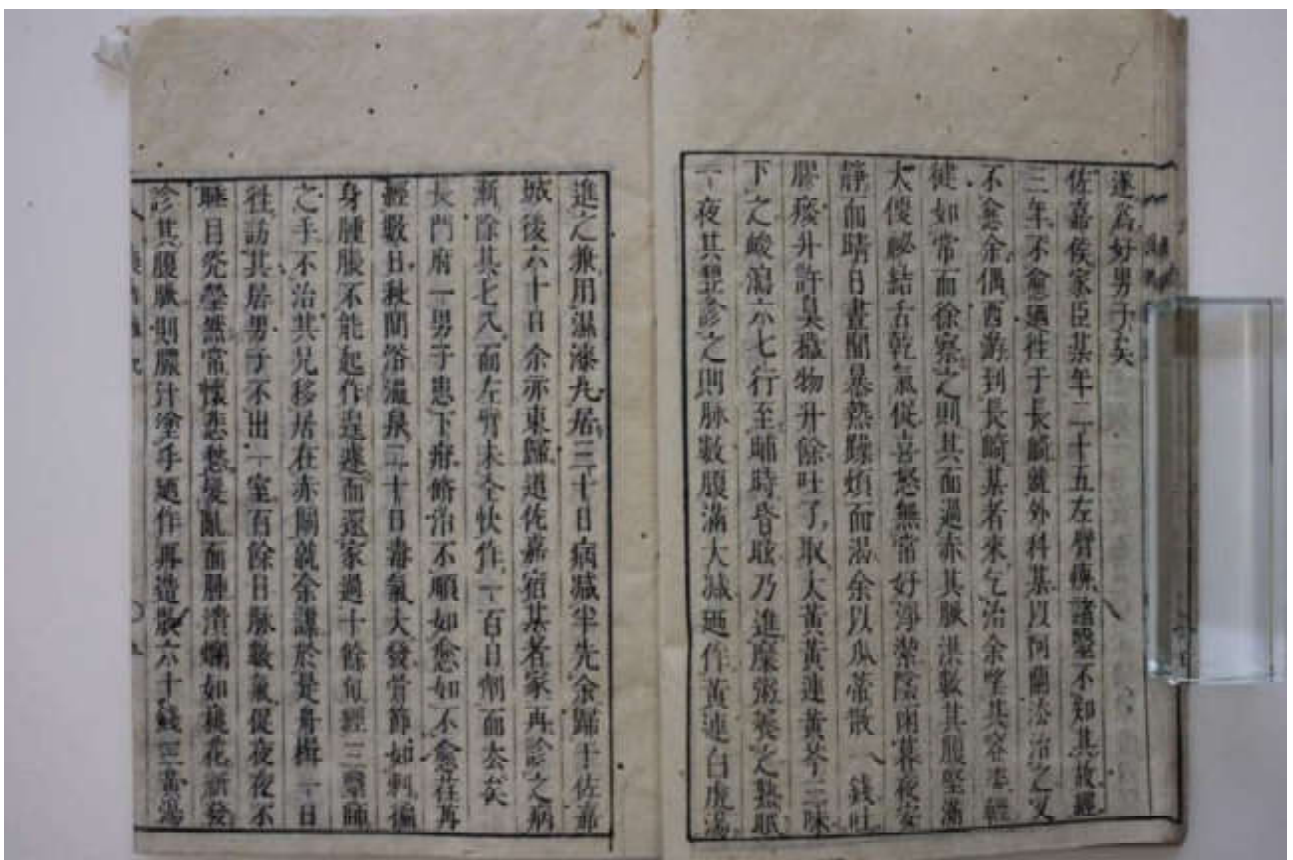 遂為好男子矣
佐嘉侯家臣某年二十五左臂痛諸醫不知其故經
三年不愈廼往于長崎就外科某以阿蘭法治之又
不愈余偶西游到長崎某者來乞治余望其容志輕
健如常而徐察之則其面過赤其脉洪數其腹堅滿
大便秘結舌乾氣促喜怒無常好淨潔陰雨暮夜安
靜而晴日晝間暴熱躁煩而渴余以瓜蒂散一錢吐
膠痰升許臭穢物升餘吐了取大黃黃連黃芩三味
下之峻瀉六七行至晡時昏眩乃進糜粥養之熟眠
一夜其翌診之則脉數腹滿大減廼作黃連白虎湯
進之兼用濕漆丸居三十日病減半先余歸于佐嘉
城後六十日余亦東歸道佐嘉宿某者家再診之病
漸除其七八而左臂未全快作一百日劑而去矣
長門府一男子患下疳脩治不順如愈如不愈荏苒
經數日秋間浴溫泉二十日毒氣大發骨節如刺徧
身腫脹不能起作遑遽而還家過十餘旬經三醫師
之手不治其兄移居在赤關就余謀於是舟楫一日
往訪其居男子不出一室百餘日脉數氣促夜夜不
睡目光熒然常懷悲愁髮亂面腫潰爛如桃花新發
診其腹脉則膿汁塗手廼作再造散六十錢三黃湯